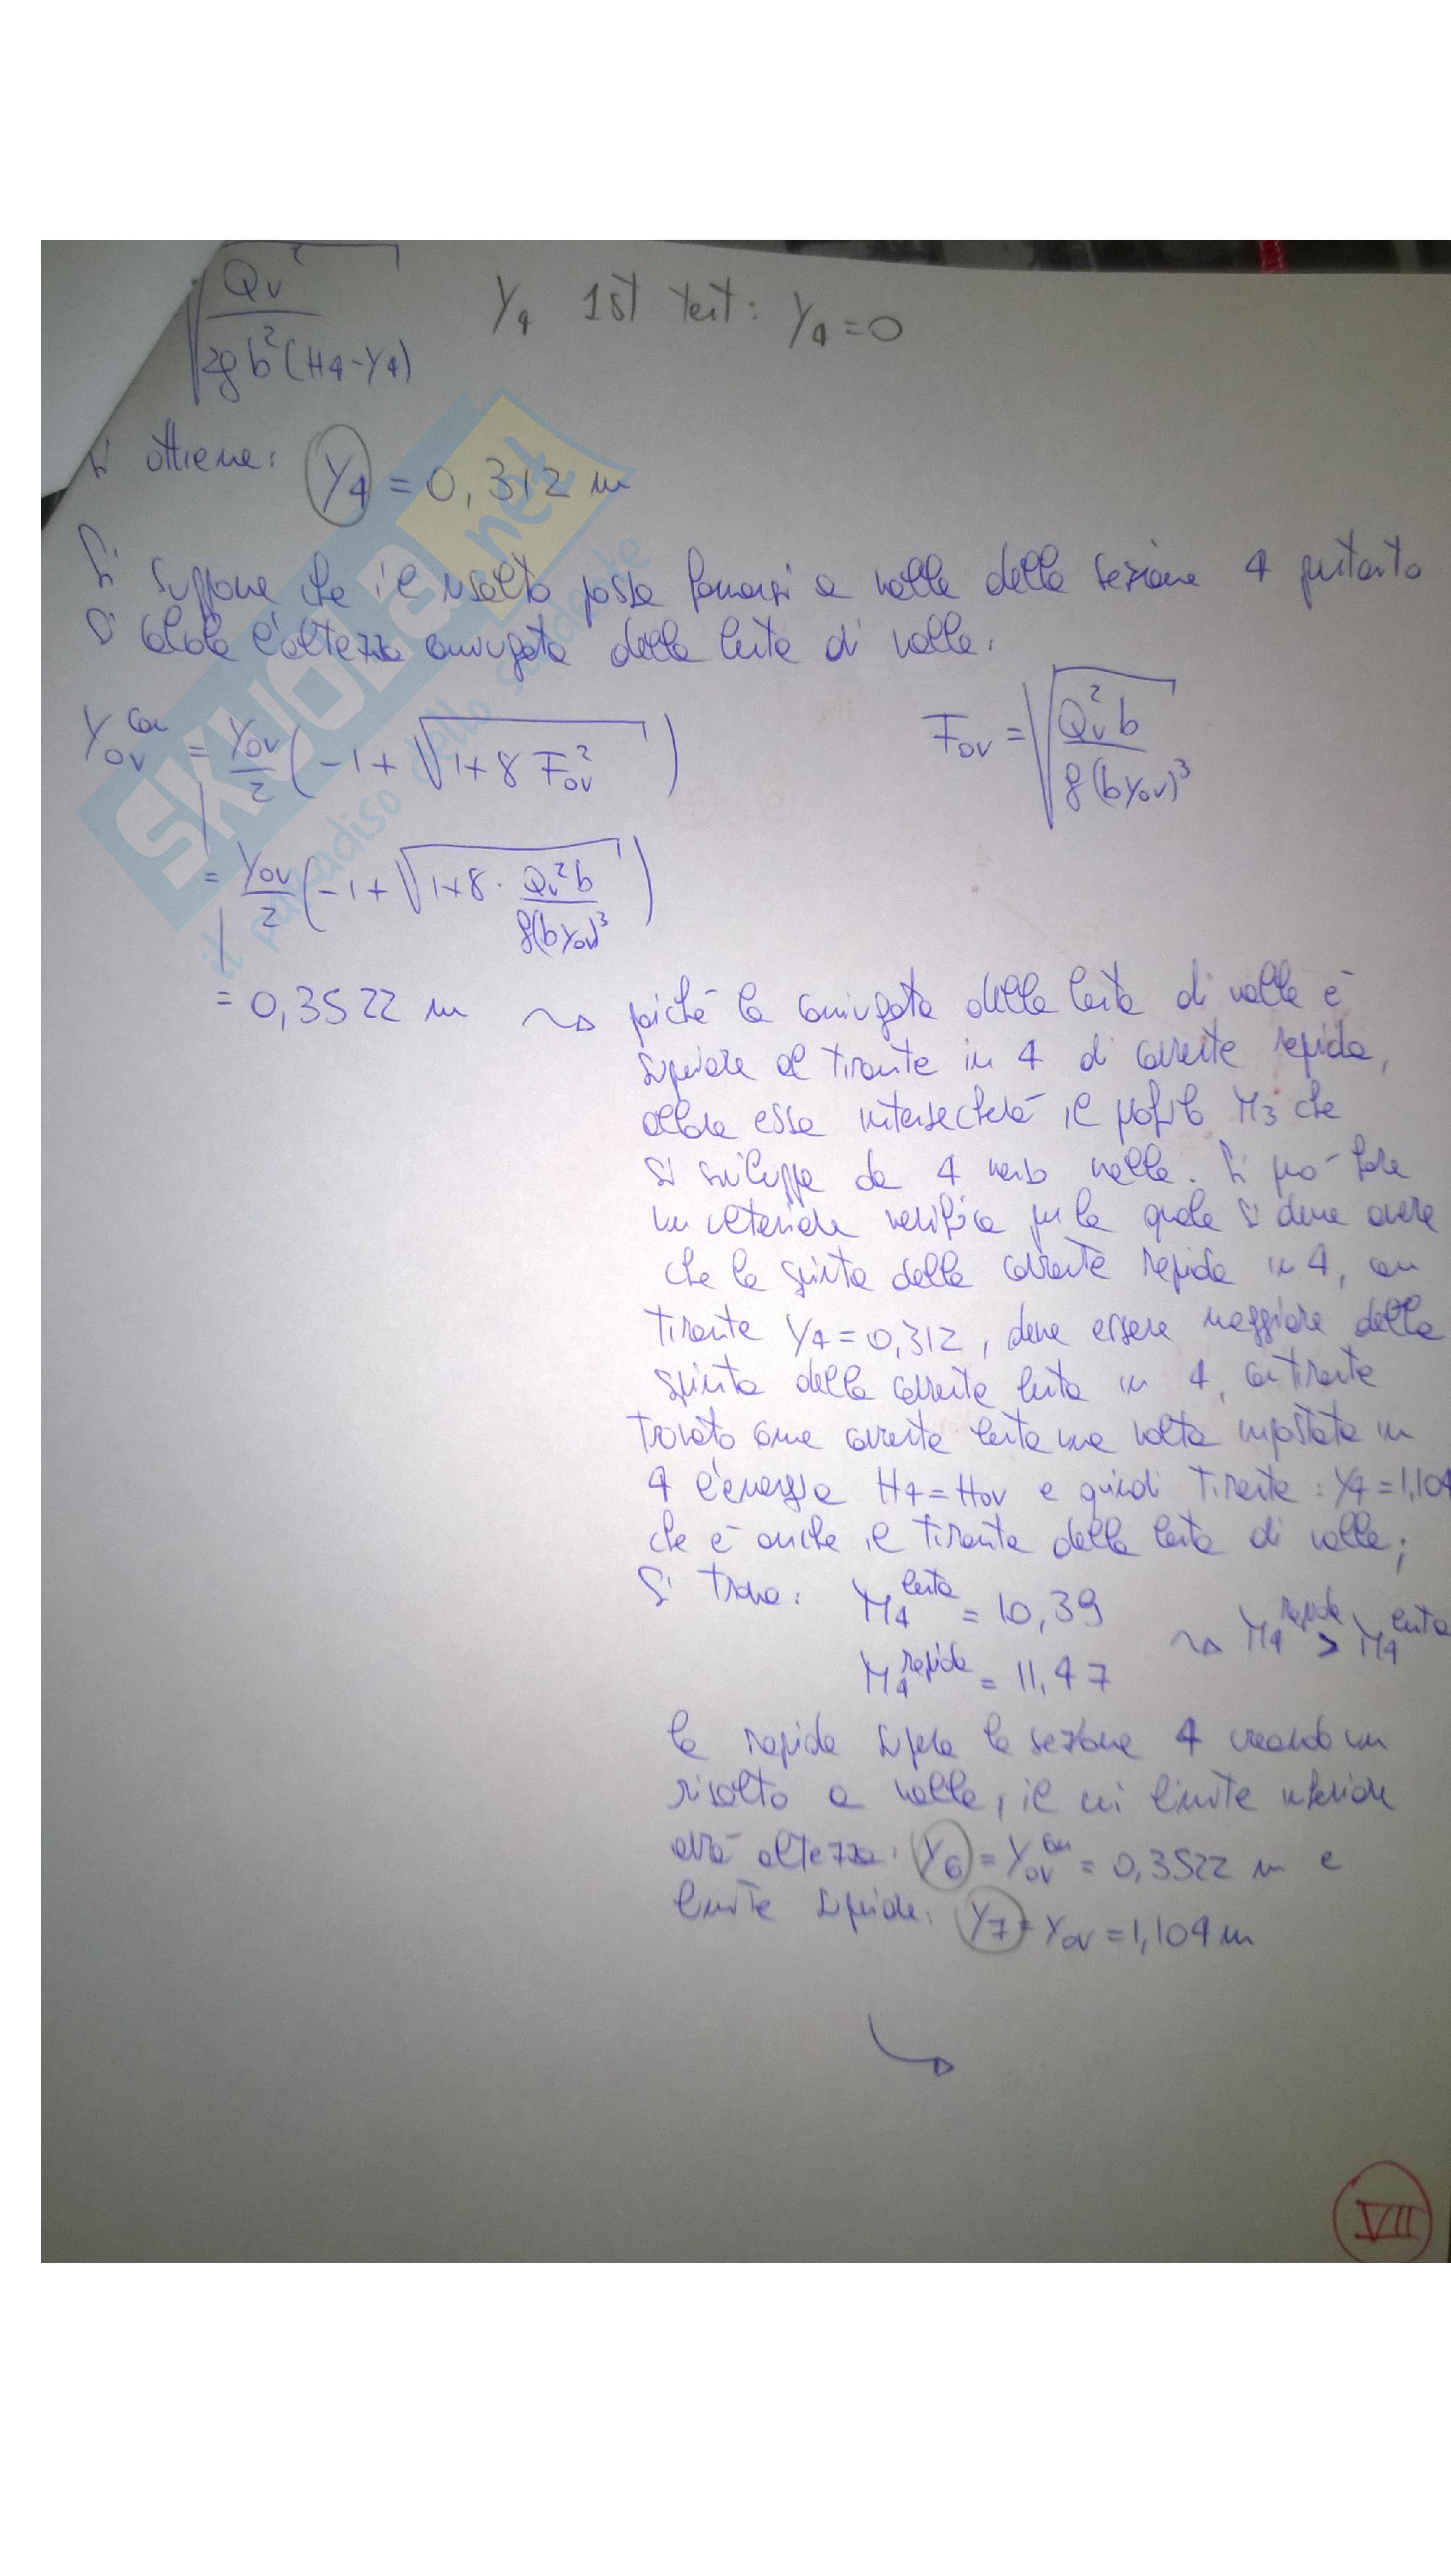 √(Qv² / 2g b² (H4-Y4)) Y4 1st test: Y4=0
Si ottiene: Y4 = 0,312 m
Si suppone che il risalto possa formarsi a valle della sezione 4 pertanto
si calcola l'altezza coniugata della lenta di valle.
Yov^con = Yov/2 (-1 + √(1+8 Fov²)) Fov = √(Qv² b / g(b Yov)³)
= Yov/2 (-1 + √(1+8 · Qv² b / g(b Yov)³))
= 0,3522 m ⇝ poiché la coniugata della lenta di valle è
superiore al tirante in 4 di corrente rapida,
allora essa intersecherà il profilo M3 che
si sviluppa da 4 verso valle. Si può fare
un'ulteriore verifica per la quale si deve avere
che la spinta della corrente rapida in 4, con
tirante Y4 = 0,312, deve essere maggiore della
spinta della corrente lenta in 4, con tirante
trovato come corrente lenta una volta impostata in
4 l'energia H4 = Hov e quindi tirante: Y4 = 1,104
che è anche il tirante della lenta di valle;
Si trova: M4^lenta = 10,39
M4^rapida = 11,47 ⇝ M4^rapida > M4^lenta
la rapida supera la sezione 4 creando un
risalto a valle, il cui limite inferiore
avrà altezza: Y6 = Yov^con = 0,3522 m e
limite superiore: Y7 = Yov = 1,104 m
VII
SKUOLA.net
il paradiso dello studente